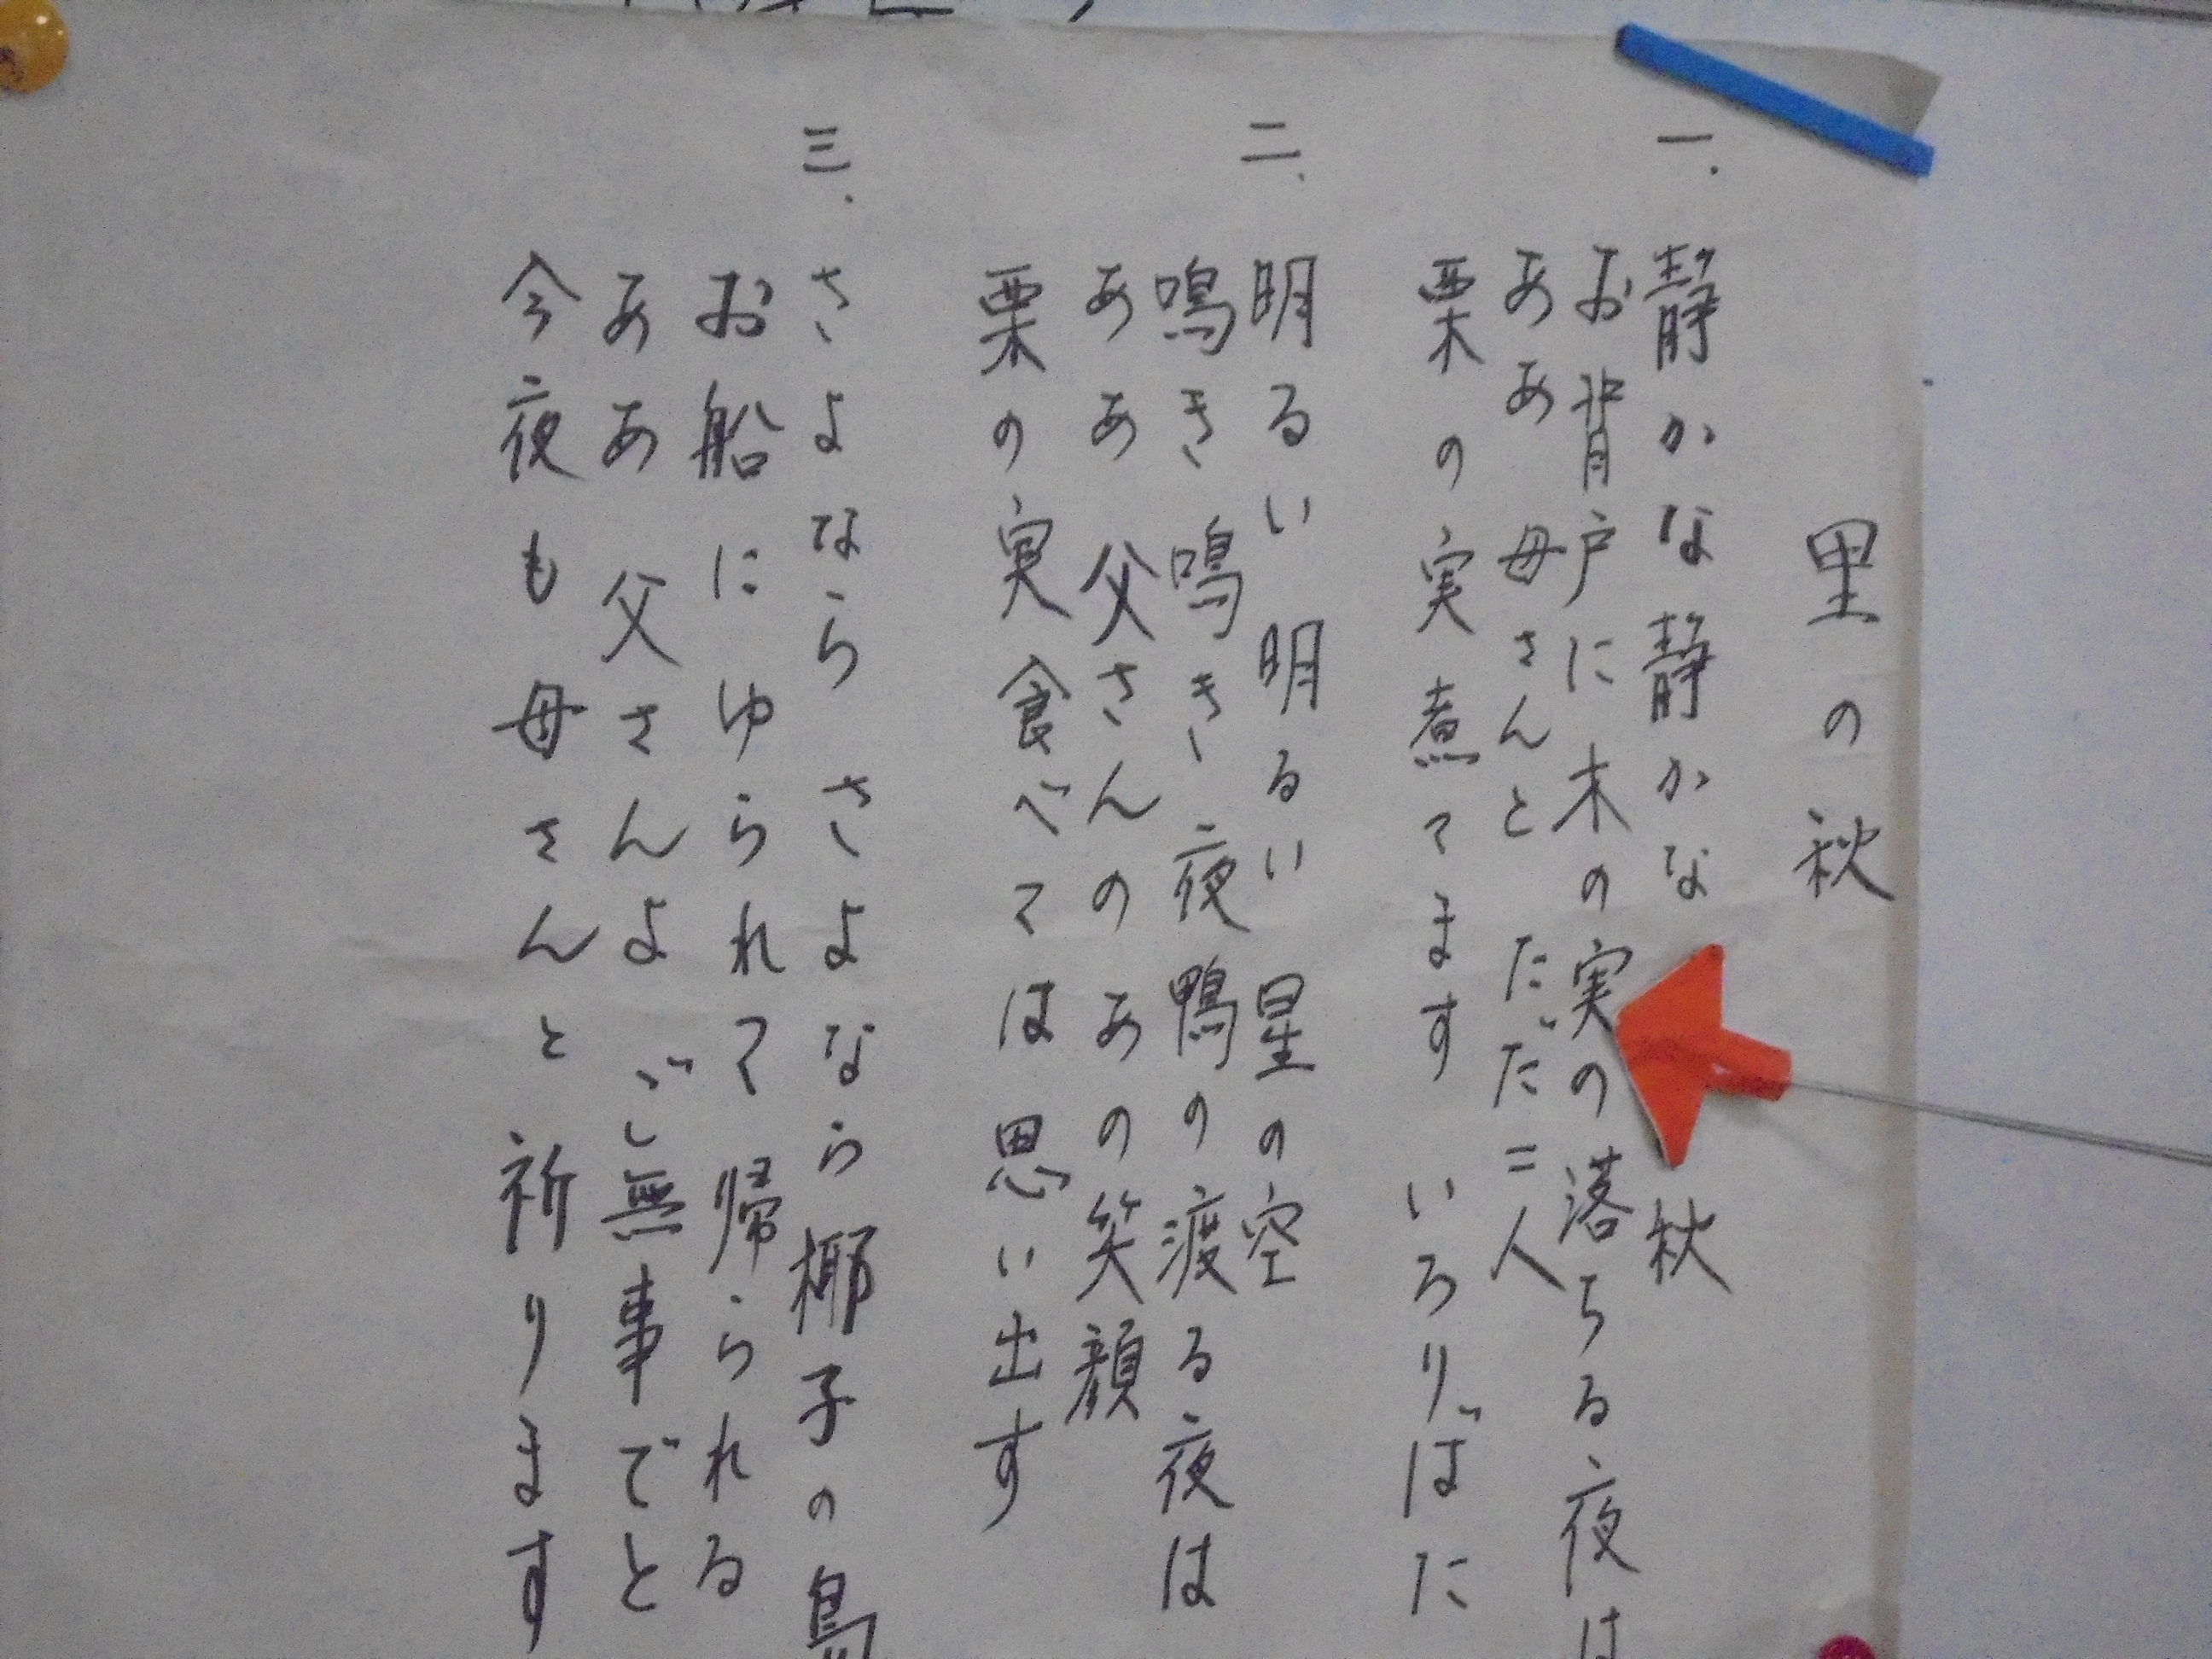 里の秋
一、
静かな静かな 秋
お背戸に木の実の落ちる夜は
ああ 母さんと ただ二人
栗の実煮てます いろりばた
二、
明るい 明るい 星の空
鳴き鳴き 夜鴨の渡る夜は
ああ 父さんのあの笑顔
栗の実食べては思い出す
三、
さよなら さよなら 椰子の島
お船にゆられて 帰られる
ああ 父さんよ ご無事でと
今夜も母さんと 祈ります